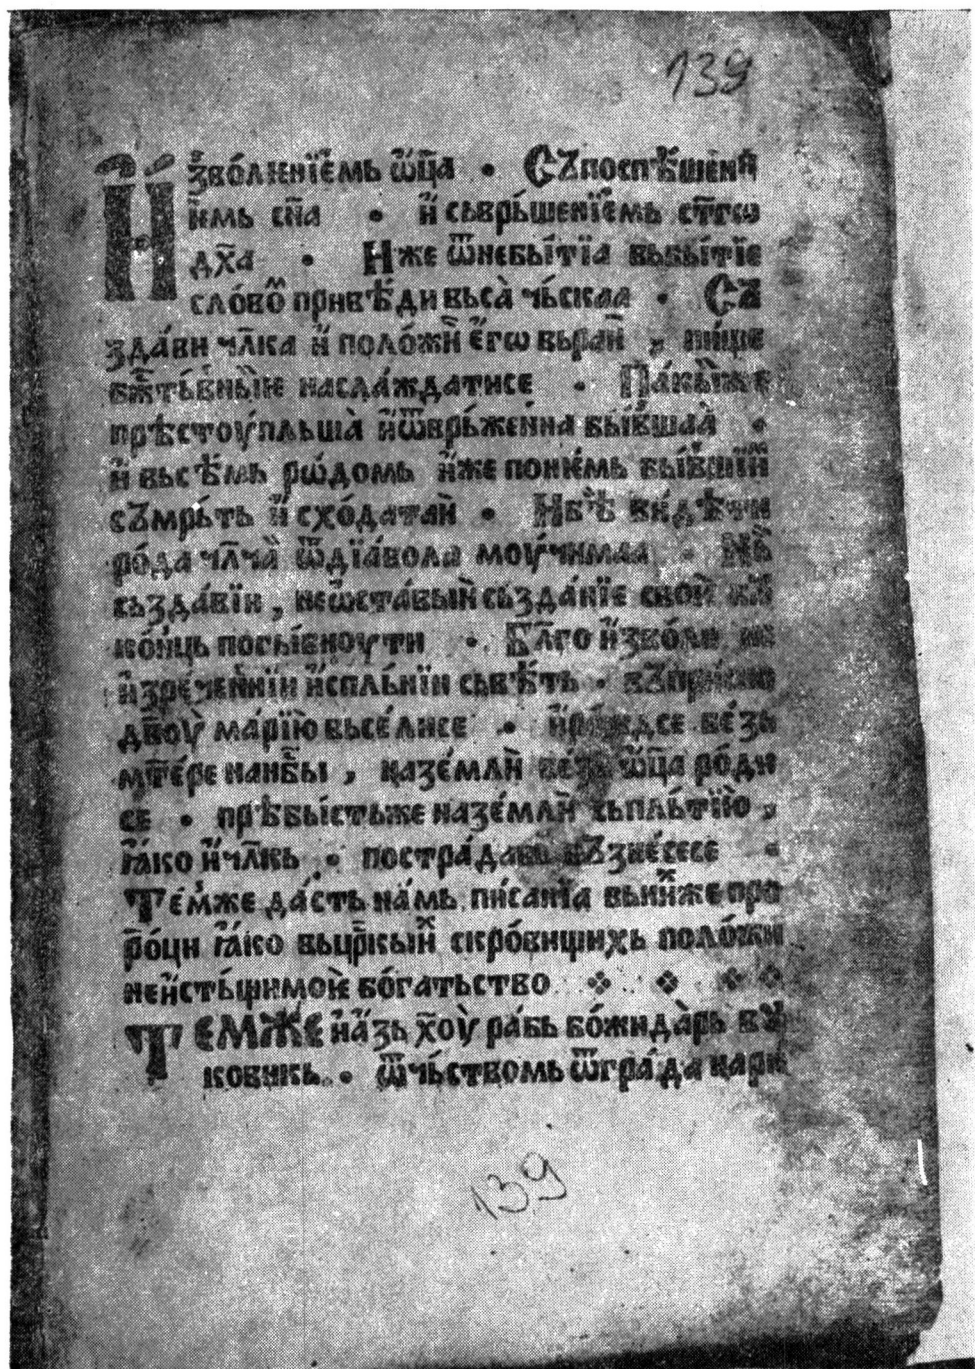 139
И҆зволѥнїе́мь ѡ҆ц҃а • Съпоспѣшенї
ѥмь сн҃а • и҆ сьврьшенїе́мь ст҃гѡ
дх҃а • Иже ѿнебы́тїа вьбы́тїе
сло́вѡⷨ приве́ди вьса̀ чьскаа • Съ
зда́ви чл҃ка и҆ поло́жи є҆гѡ вьраи҆ , пи́ще
бж҃ть́вныѥ насла́ждатисе • Па́кыже
прѣстоу́пльша̀ и҆ѿврь́жен́на бы́вшаа̀ •
и҆ вьсѣ́мь рѡ́домь и҆же пониѥ́мь бы́вшїи
съмрь́ть и҆ схо́датаи҆ • Небѣ̀ ви́дѣти
ро́да чл҃ча̀ ѿдїа́вола моу́чимаа •
сьзда́вїи , неѡ҆ста́выи҆ сьзда́нїе своѥ̀
ко́нць погы́бноути • Бл҃го и҆зво́ли
и҆зре́чен́нїи и҆спль́нїи сьвѣ́ть •
дв҃оу̀ ма́рїю̀ вьсе́лисе • и҆ро́ждсе бе́зь
мт҃е́ре нанб҃ы , на зе́мли̂ бе́зь ѡ҆ц҃а ро́ди
се • прѣбы́стьже назе́мли̂ сьпль́тїю̀ ,
ꙗ҆ко и҆чл҃кь • постра́давь възне́сесе •
Те́мже да́сть на́мь писа́нїа вьни́хже про
ро́ци ꙗ҆ко вьцр҃кыиⷯ скро́вищихь поло́жи
неи҆сть́щимоѥ̀ бо́гатьство ❖ ❖ ❖ ❖
Темже и҆а҆зь х҃оу̀ ра́бь бо́жида̀рь вꙋ
ковикь • ѿ҆чь́ствомь ѿгра́да
139